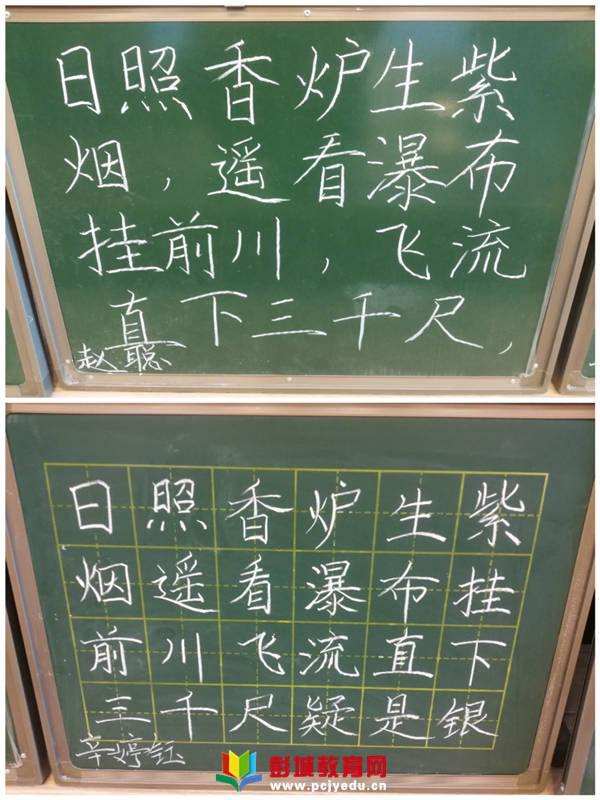 日照香炉生紫
烟，遥看瀑布
挂前川，飞流
直下三千尺，
赵聪
日照香炉生紫
烟遥看瀑布挂
前川飞流直下
三千尺疑是银
辛婷钰
彭城教育网
www.pcjyedu.cn